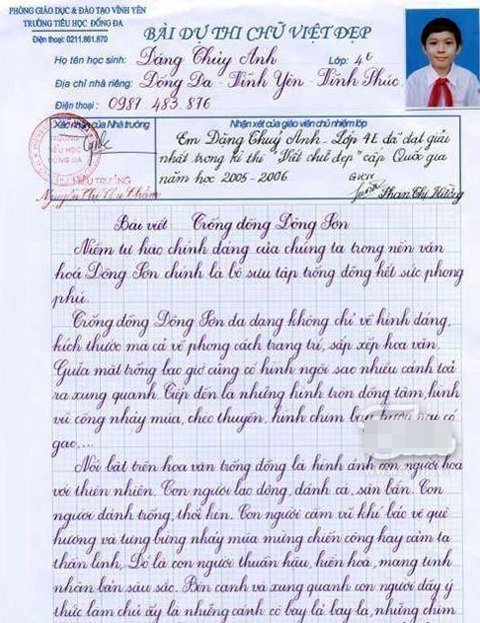 PHÒNG GIÁO DỤC & ĐÀO TẠO VĨNH YÊN
TRƯỜNG TIỂU HỌC ĐỐNG ĐA
Điện thoại: 0211.861.870
BÀI DỰ THI CHỮ VIỆT ĐẸP
Họ tên học sinh: Dáng Thủy Anh Lớp: 4E
Địa chỉ nhà riêng: Dống Da - Vĩnh Yên - Vĩnh Phúc.
Điện thoại: 0987 483 876
Xác nhận của Nhà trường
Nhận xét của giáo viên chủ nhiệm lớp
Em Dặng Thuỷ Anh - Lớp 4E đã đạt giải
nhất trong kì thi "Viết chữ đẹp" cấp Quốc gia
năm học 2005 - 2006
GVCN
HIỆU TRƯỞNG
Phan Thị Hường
Bài viết Trống đồng Đông Sơn
Niềm tự hào chính đáng của chúng ta trong nền văn
hoá Đông Sơn chính là bộ sưu tập trống đồng hết sức phong
phú.
Trống đồng Đông Sơn đa dạng không chỉ về hình dáng,
kích thước mà cả về phong cách trang trí, sắp xếp hoa văn.
Giữa mặt trống bao giờ cũng có hình ngôi sao nhiều cánh toả
ra xung quanh. Tiếp đến là những hình tròn đồng tâm, hình
vũ công nhảy múa, chèo thuyền, hình chim
gạc....
Nổi bật trên hoa văn trống đồng là hình ảnh con người hoà
với thiên nhiên. Con người lao động, đánh cá, săn bắn. Con
người đánh trống, thổi kèn. Con người cầm vũ khí bảo vệ quê
hương và tưng bừng nhảy múa mừng chiến công hay cảm tạ
thần linh. Đó là con người thuần hậu, hiền hoà, mang tính
nhân bản sâu sắc. Bên cạnh và xung quanh con người đầy ý
thức làm chủ ấy là những cánh cò bay lả bay la, những chim